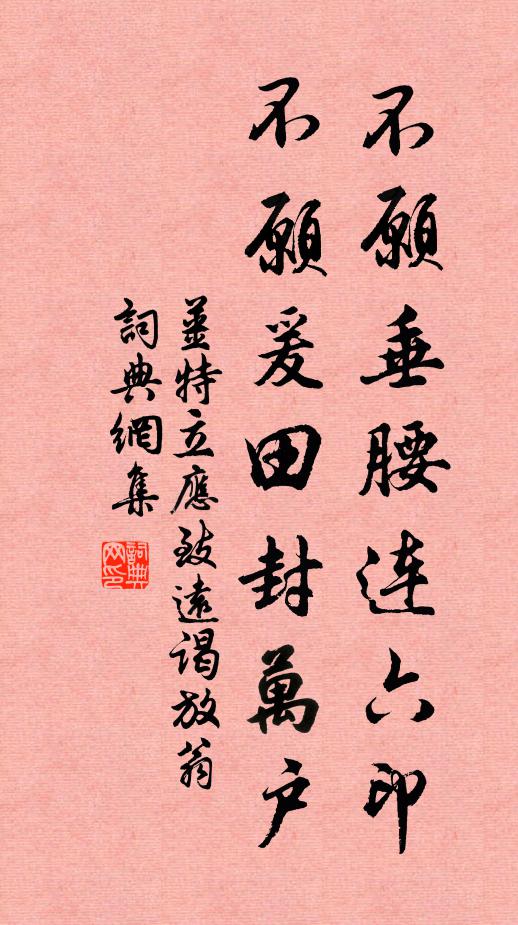 不願垂腰連六印
不願爰田封萬戶
姜特立應致遠謁放翁
詞典網集
詞典網印